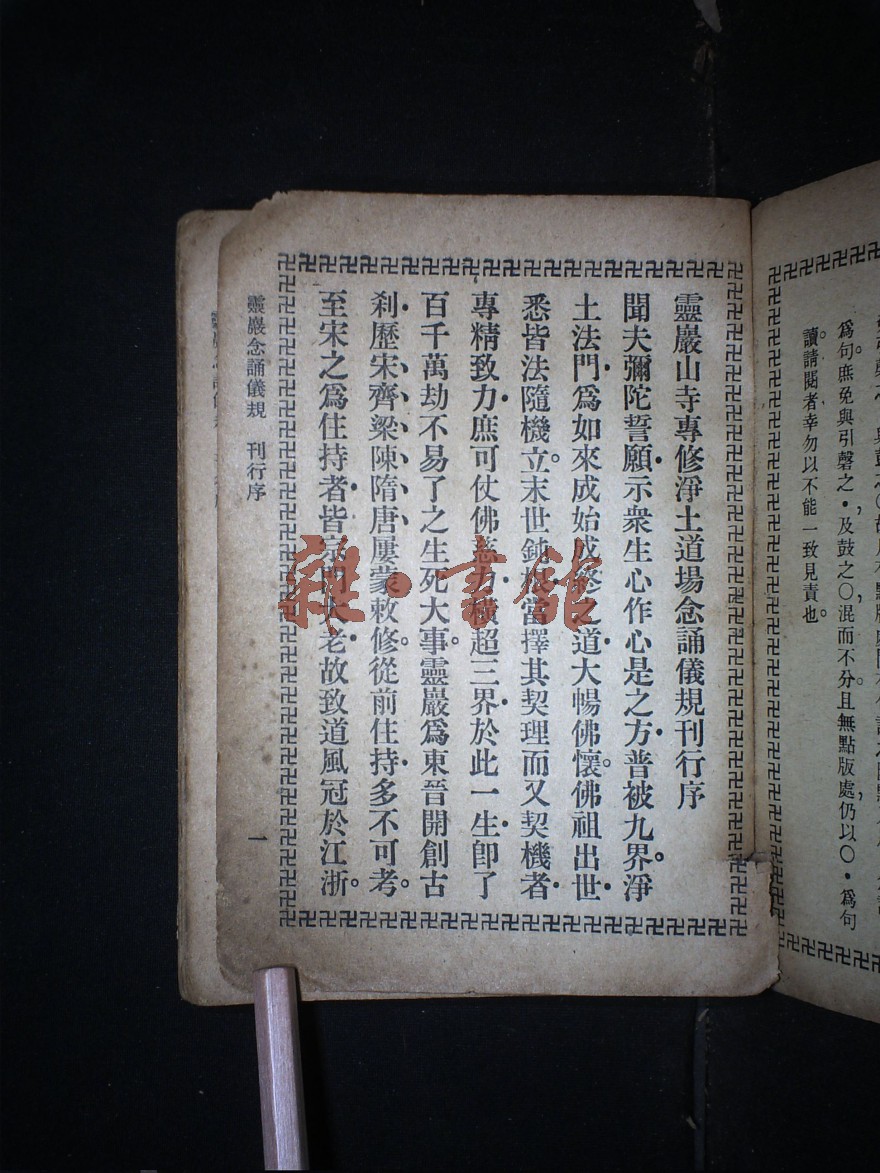 爲句。庶免與引磬之・,及鼓之〇,混而不分。且無點版處,仍以〇・爲句
讀。請閱者幸勿以不能一致見責也。
靈巖山寺專修淨土道場念誦儀規刊行序
聞夫彌陀誓願・示衆生心作心是之方・普被九界。淨
土法門・爲如來成始成終之道・大暢佛懷。佛祖出世・
悉皆法隨機立。末世鈍根・當擇其契理而又契機者・
專精致力・庶可仗佛慈力・橫超三界・於此一生・卽了
百千萬劫不易了之生死大事。靈巖爲東晉開創古
剎・歷宋、齊、梁、陳、隋、唐、屢蒙敕修。從前住持・多不可考。
至宋之爲住持者・皆宗門大老・故致道風冠於江浙。
靈巖念誦儀規 刊行序 一
雜・書館